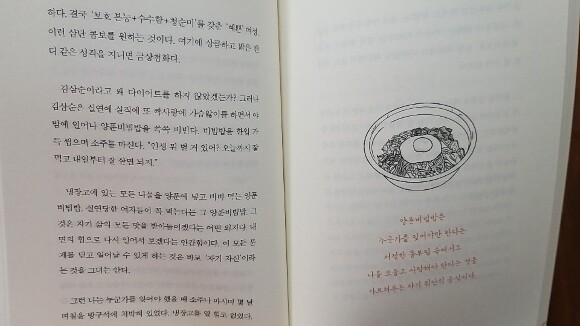 하다. 결국 '보호 본능+수수함+청순미'를 갖춘 '예쁜' 여성,
이런 삼단 콤보를 원하는 것이다. 여기에 상큼하고 밝은 캔
디 같은 성격을 지니면 금상첨화다.
김삼순이라고 왜 다이어트를 하지 않았겠는가? 그러나
김삼순은 실연에 실직에 또 짝사랑에 가슴앓이를 하면서 야
밤에 일어나 양푼비빔밥을 쓱쓱 비빈다. 비빔밥을 한입 가
득 씹으며 소주를 마신다. "인생 뭐 별 거 있어? 오늘까지 잘
먹고 내일부터 잘 살면 되지."
냉장고에 있는 모든 나물을 양푼에 넣고 비벼 먹는 양푼
비빔밥. 실연당한 여자들이 꼭 먹는다는 그 양푼비빔밥. 그
것은 자기 삶의 모든 맛을 받아들이겠다는 어떤 의지다. 내
면의 힘으로 다시 일어서 보겠다는 안간힘이다. 이 모든 문
제를 딛고 일어날 수 있게 하는 것은 바로 '자기 자신'이라
는 것을 그녀는 안다.
그런 나는 누군가를 잊어야 했을 때 소주나 마시며 몇 날
며칠을 방구석에 처박혀 있었다. 냉장고를 열 힘도 없었다.
양푼비빔밥은
누군가를 잊어야만 한다는
처절한 몸부림 속에서도
나를 보듬고 사랑해야 한다는 것을
가르쳐주는 자기 위안의 음식이다.